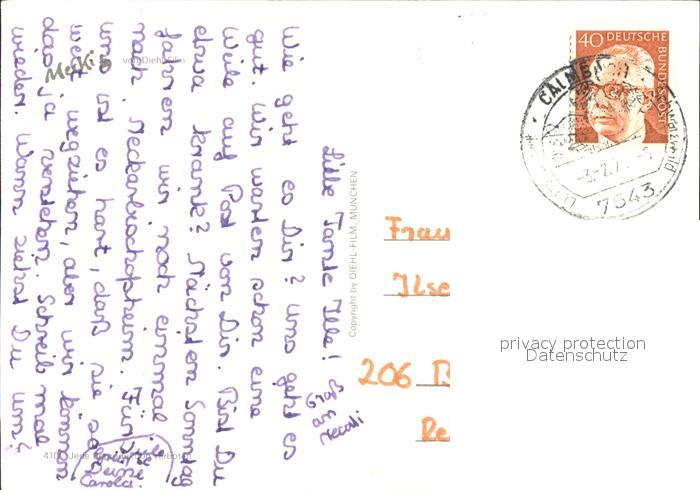 Liebe Tante Ille!
Wie geht es Dir? Uns geht es
gut. Wir warten schon eine
Weile auf Post von Dir. Bist Du
etwa krank? Nächsten Sonntag
fahren wir noch einmal
nach Neckarbischofsheim. Für
uns ist es hart, daß sie so
weit wegziehen, aber wir können
das ja verstehen. Schreib mal
wieder. Wann ziehst Du um?
Deine
Carola
Gruß
an
Mecki
von Diehl-Film
Copyright by DIEHL-FILM, MÜNCHEN
40 DEUTSCHE
BUNDESPOST
CALMBACH
7543
Frau
Ilse
206 B
Re
privacy protection
Datenschutz